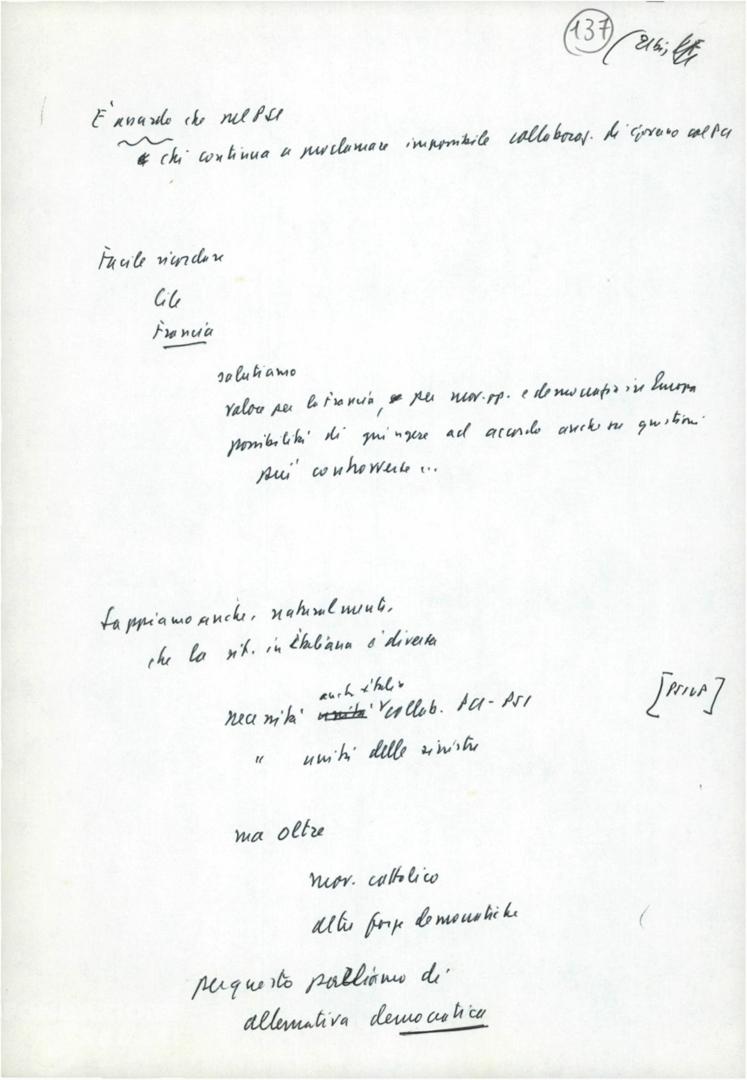 137
È assurdo che nel PSI
chi continua a proclamare impossibile collaboraz. di governo col PCI
Facile ricordare
Cile
Francia
salutiamo
valore per la Francia, per mov. op. e democrazia in Europa
possibilità di giungere ad accordo anche su questioni
più controverse...
Sappiamo anche, naturalmente,
che la sit. in italiana è diversa
anche italia
necessità unità collab. PCI-PSI
[PSIUP]
" unità delle sinistre
ma oltre
mov. cattolico
altre forze democratiche
per questo parliamo di
alternativa democratica